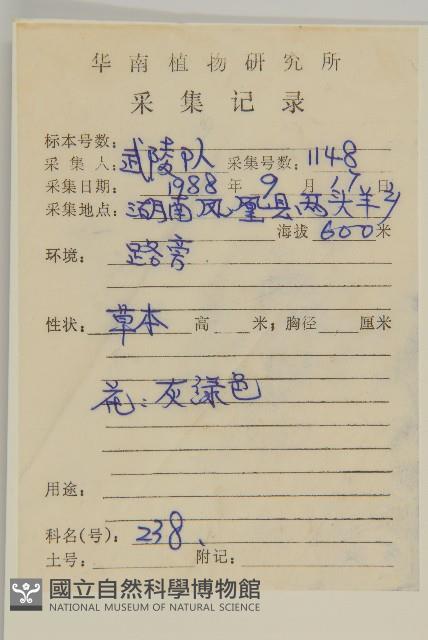 华南植物研究所
采集记录
标本号数:
采集人: 武陵队 采集号数: 1148
采集日期: 1988 年 9 月 17 日
采集地点: 湖南凤凰县两头羊乡
海拔 600 米
环境: 路旁
性状: 草本 高 米; 胸径 厘米
花: 灰绿色
用途:
科名(号): 238、
土号: 附记:
國立自然科學博物館
NATIONAL MUSEUM OF NATURAL SCIENCE